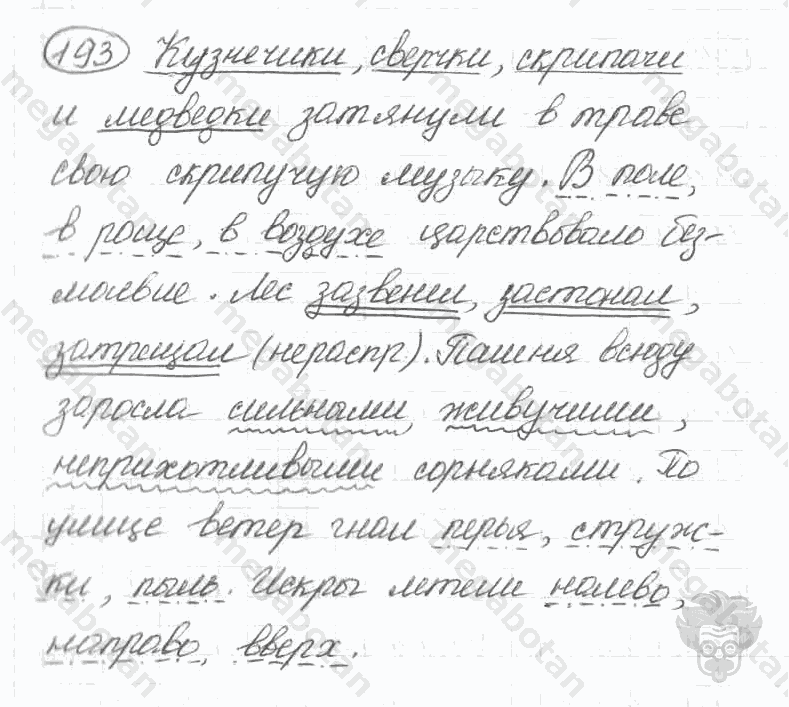 193 Кузнечики, сверчки, скрипачи
и медведки затянули в траве
свою скрипучую музыку. В поле,
в роще, в воздухе царствовало без-
молвие. Лес зазвенел, застонал,
затрещал (нераспр). Пашня всюду
заросла сильными, живучими,
неприхотливыми сорняками. По
улице ветер гнал перья, струж-
ки, пыль. Искры летели налево,
направо, вверх.
megabotan